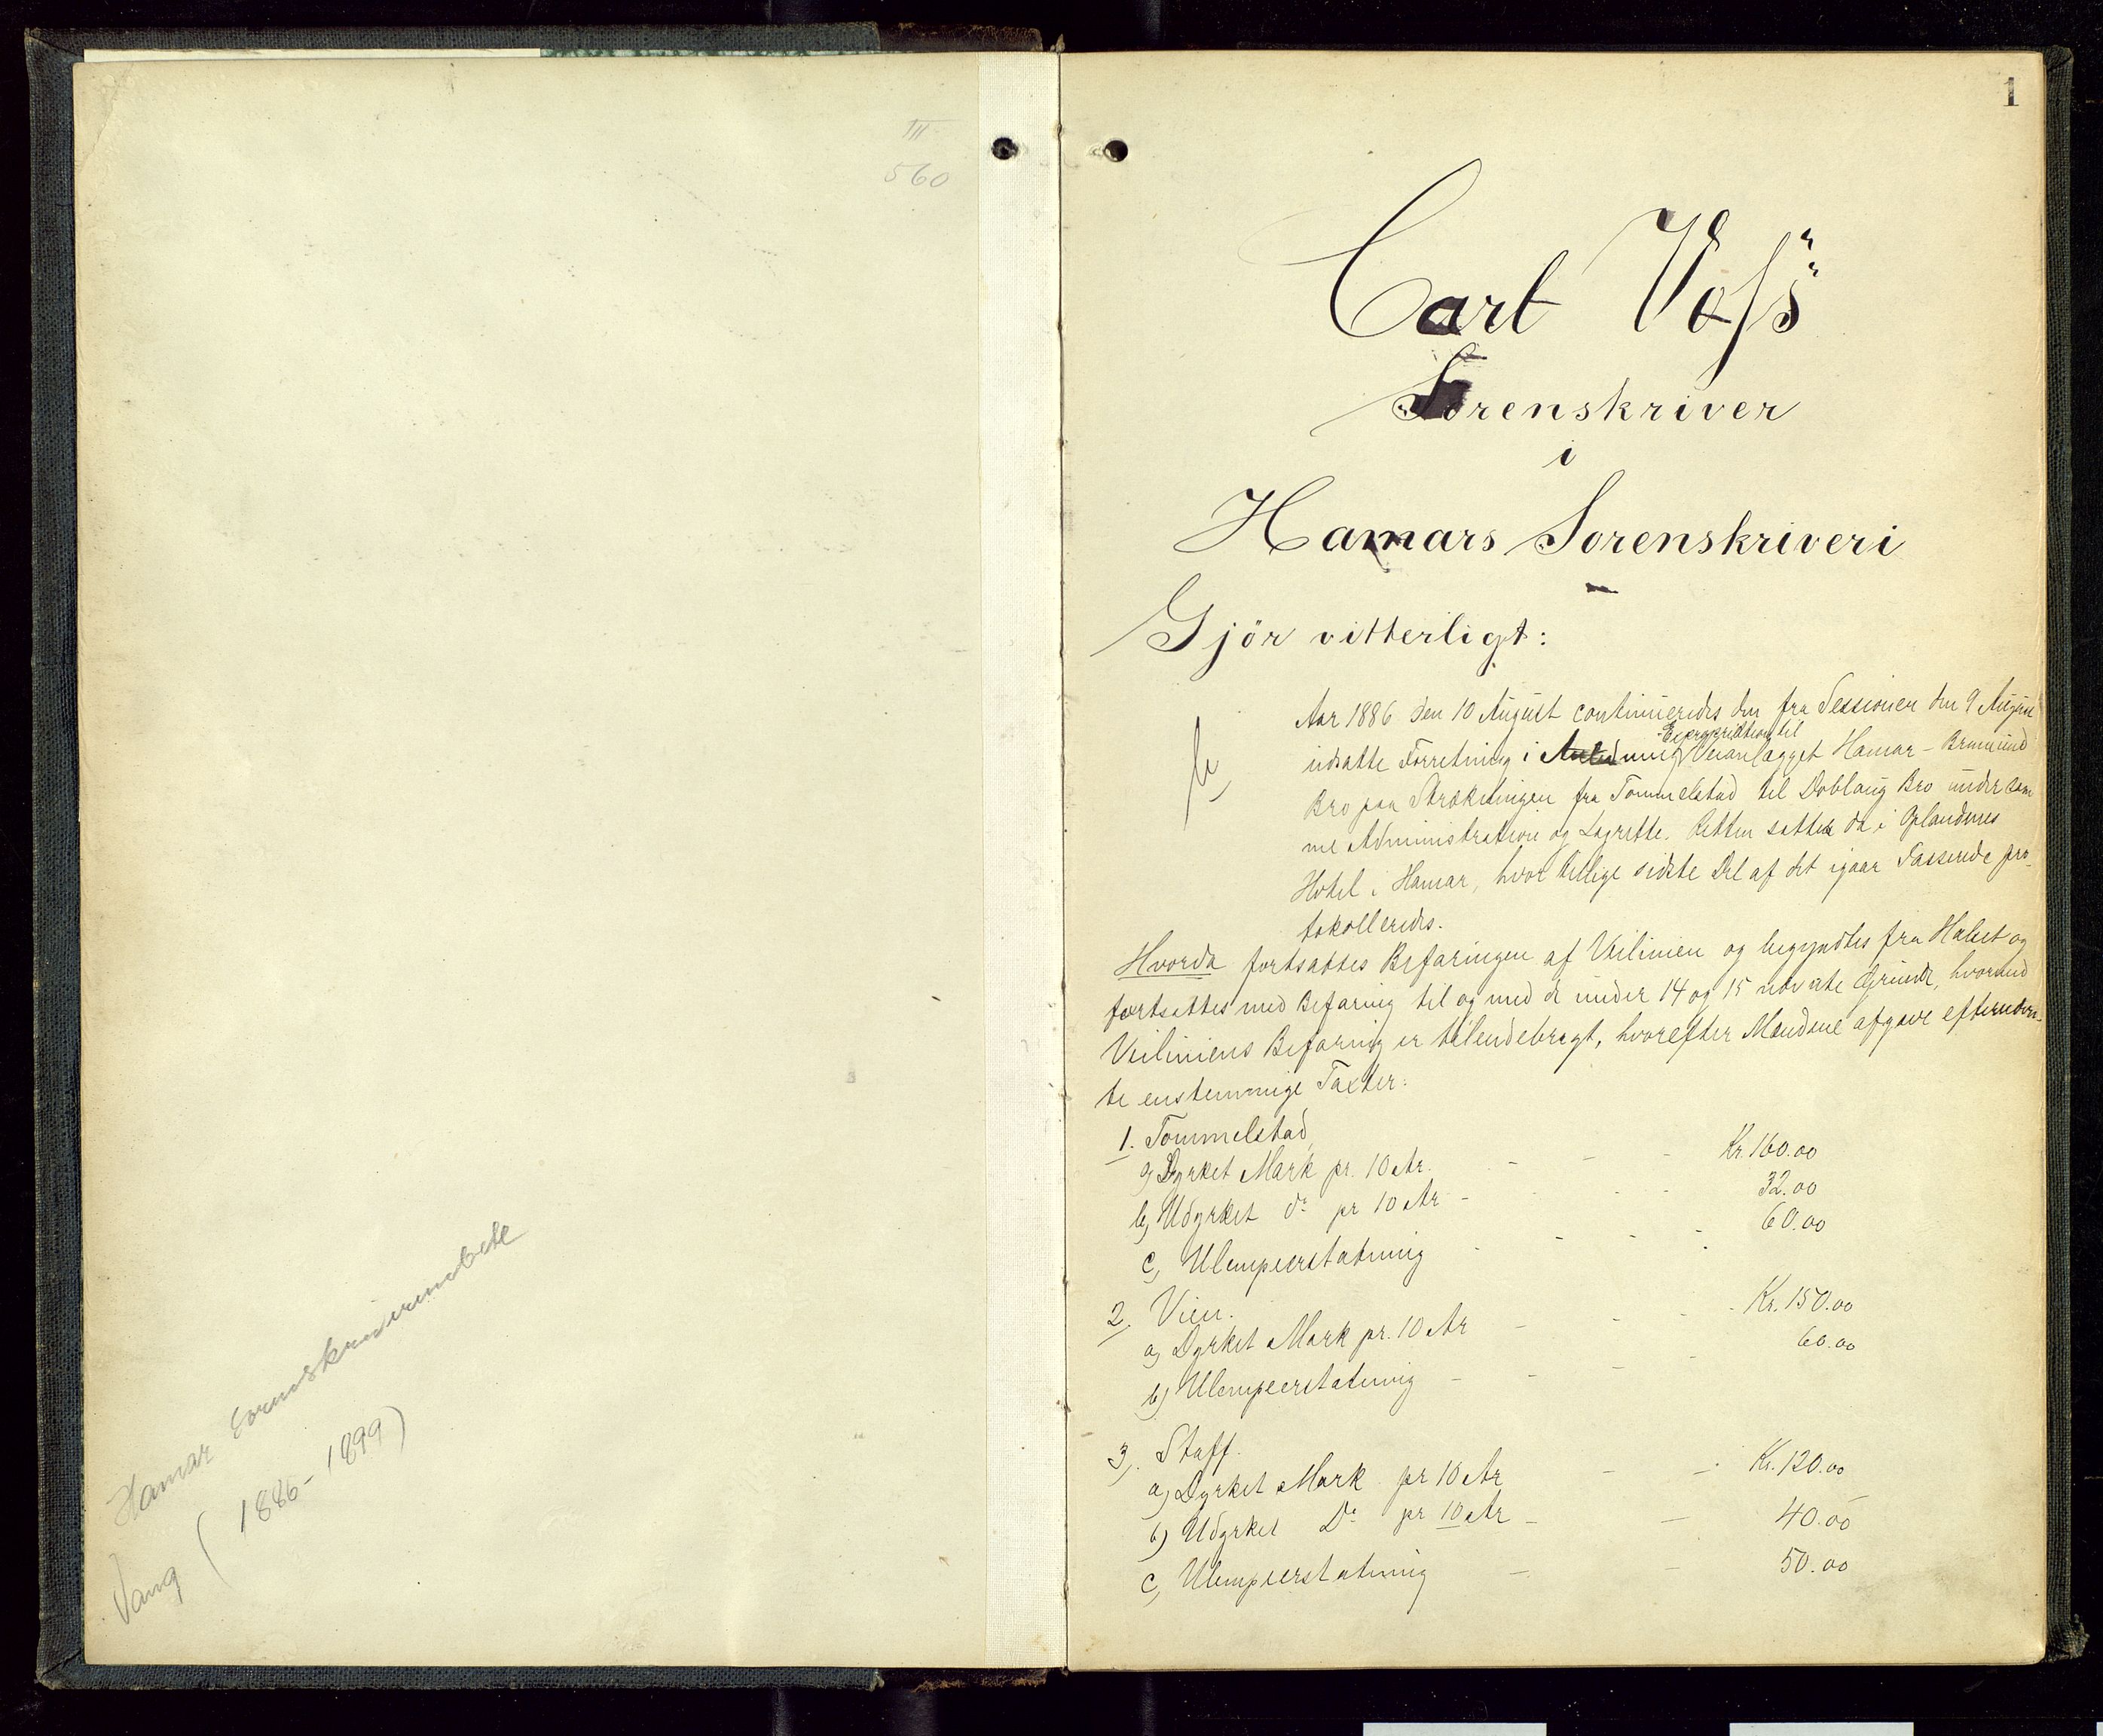 III
560
Hamar sorenskriverembete
Vang (1886-1899)
1
Carl Voss
Sorenskriver
i
Hamars Sorenskriveri
Gjör vitterligt:
Aar 1886 den 10 August continueredes den fra Sessionen den 9 August
udsatte Forretning i Anledning Expropriation til Veianlægget Hamar - Brumund
Bro paa Strækningen fra Tommelstad til Doblaug Bro under sam
me Administration og Lagrette. Retten sattes da i Oplandenes
Hotel i Hamar, hvor tillige sidste Del af det igaar Passerede pro-
tokolleredes.
Hvorda fortsattes Befaringen af Veilinien og begyndtes fra Hubert og
fortsattes med Befaring til og med de under 14 og 15 nævnte Grunde, hvormed
Veiliniens Befaring er tilendebragt, hvorefter Mændene afgave efternævn-
te enstemmige Taxter:
1. Tommelstad,
a) Dyrket Mark pr. 10 Ar. - - - Kr. 160.00
b) Udyrket do pr 10 Ar - - - 32.00
c, Ulempeerstatning - - - - 60.00
2. Vien.
a, Dyrket Mark pr. 10 Ar - - - Kr. 150.00
b) Ulempeerstatning - - - - 60.00
3, Staff.
a) Dyrket Mark pr 10 Ar - - Kr. 120.00
b) Udyrket Do pr 10 Ar - - 40.00
c, Ulempeerstatning - - 50.00